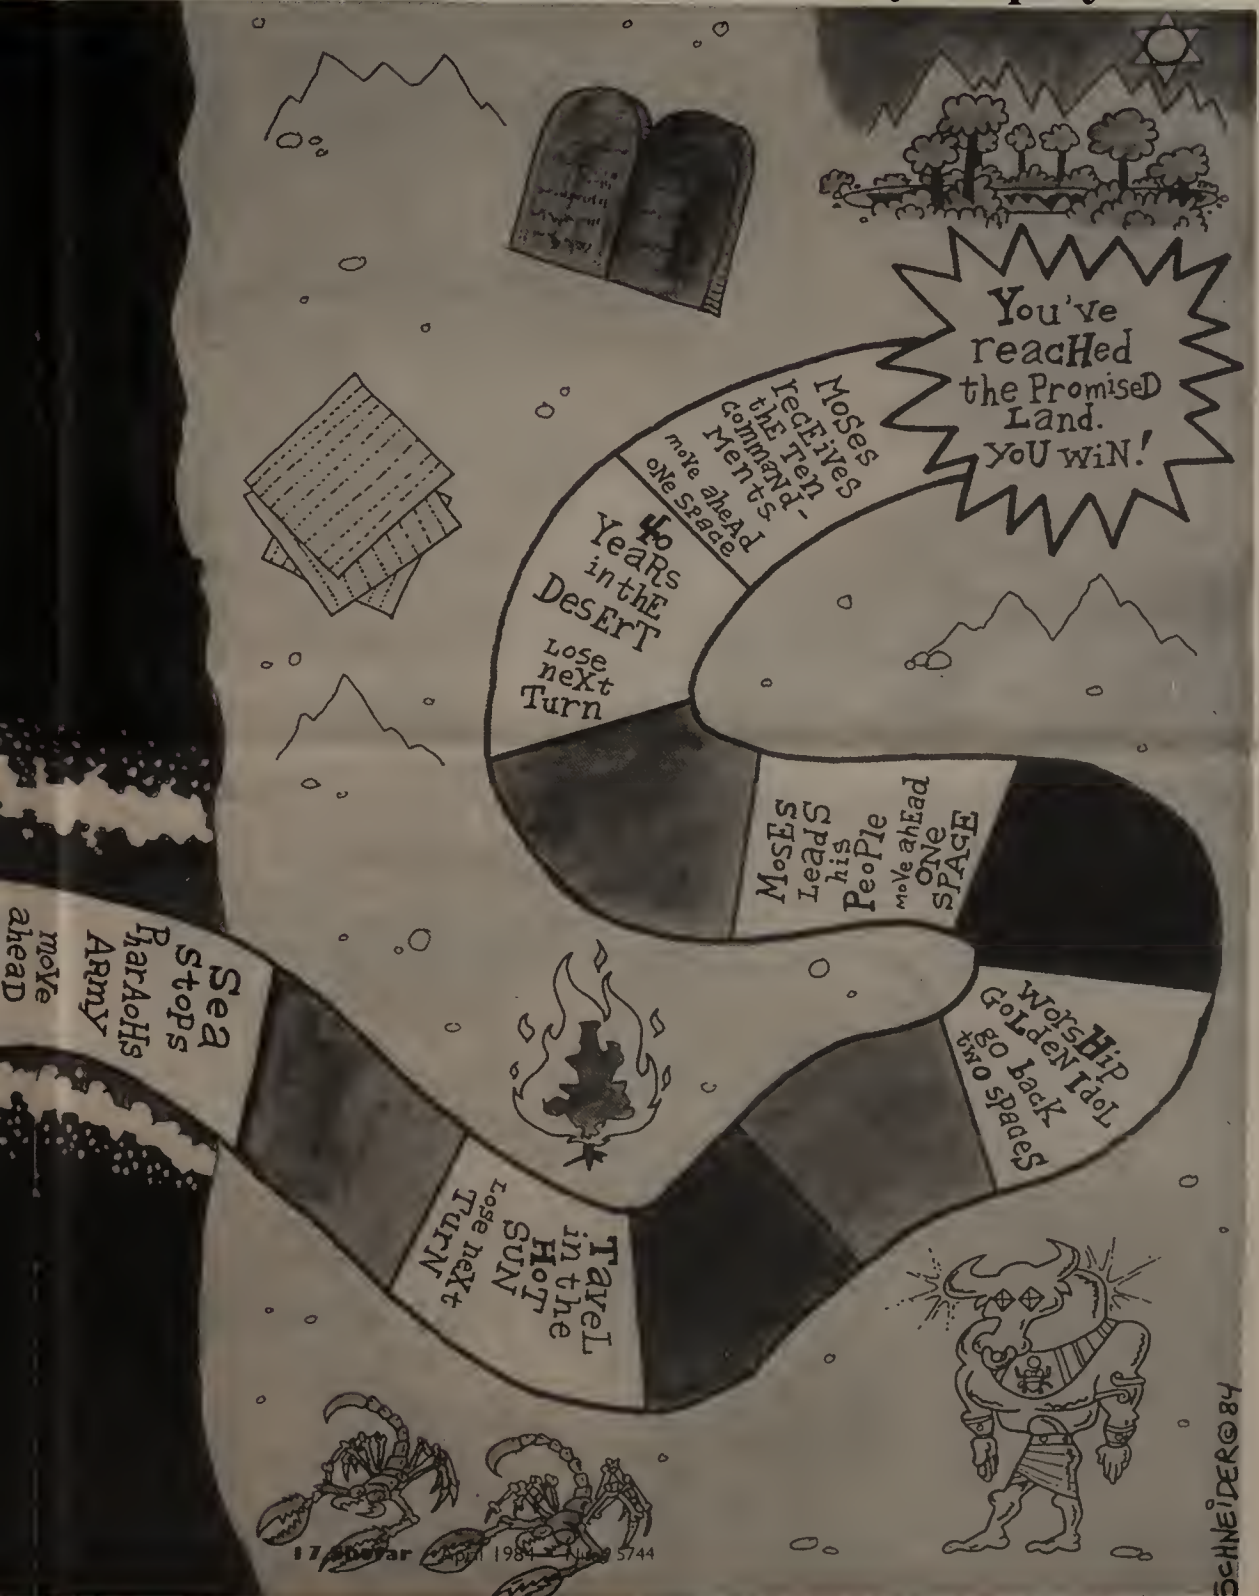 You've
reacHed
the PromiseD
Land.
YoU WiN!
MoSes
recEives
thE Ten
Command-
Ments
moVe aheAd
oNe space
40
YeaRs
in thE
DesErT
Lose
neXt
Turn
MosEs
LeadS
his
PeoPle
moVe ahEad
ONe
SPAcE
WorsHip
GoLdeN IdoL
go back
two spaceS
TaveL
in the
HoT
SUN
Lose neXt
TurN
Sea
Stops
PharAoHs
ARmy
moVe
aheaD
SCHNEiDER©84
17 Shofar April 1984 5744